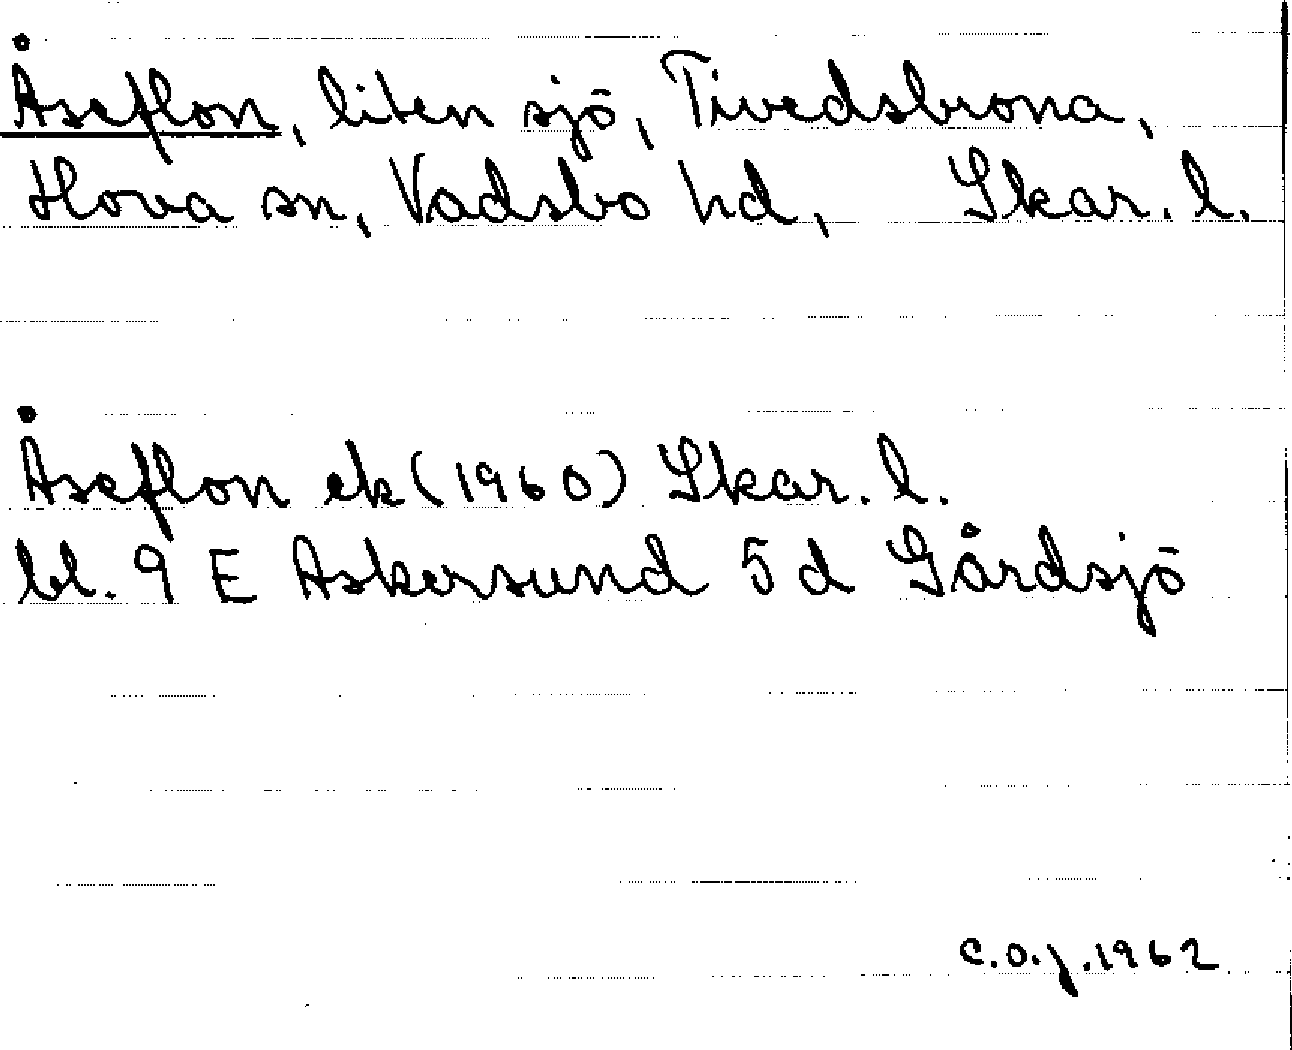 Åseflon, liten sjö, Tivedsbrona,
Hova sn, Vadsbo hd, Skar. l.
Åseflon ek (1960) Skar. l.
bl. 9 E Askersund 5 d Gårdsjö
C.O.J. 1962